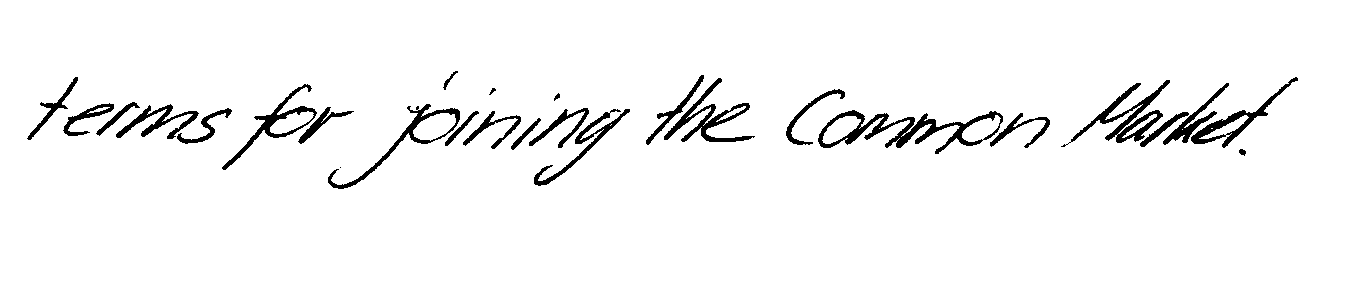 terms for joining the Common Market.